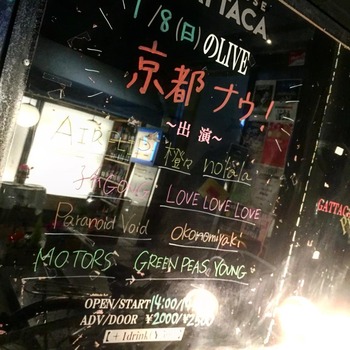 GATTACA
1/8(日)のLIVE
京都ナウ!
~出演~
橙々 nofala
LOVE LOVE LOVE
Paranoid void okonomiyaki
MOTORS GREEN PEAS YOUNG
OPEN/START 14:00/
ADV/DOOR ¥2000/¥2500
GATTACA